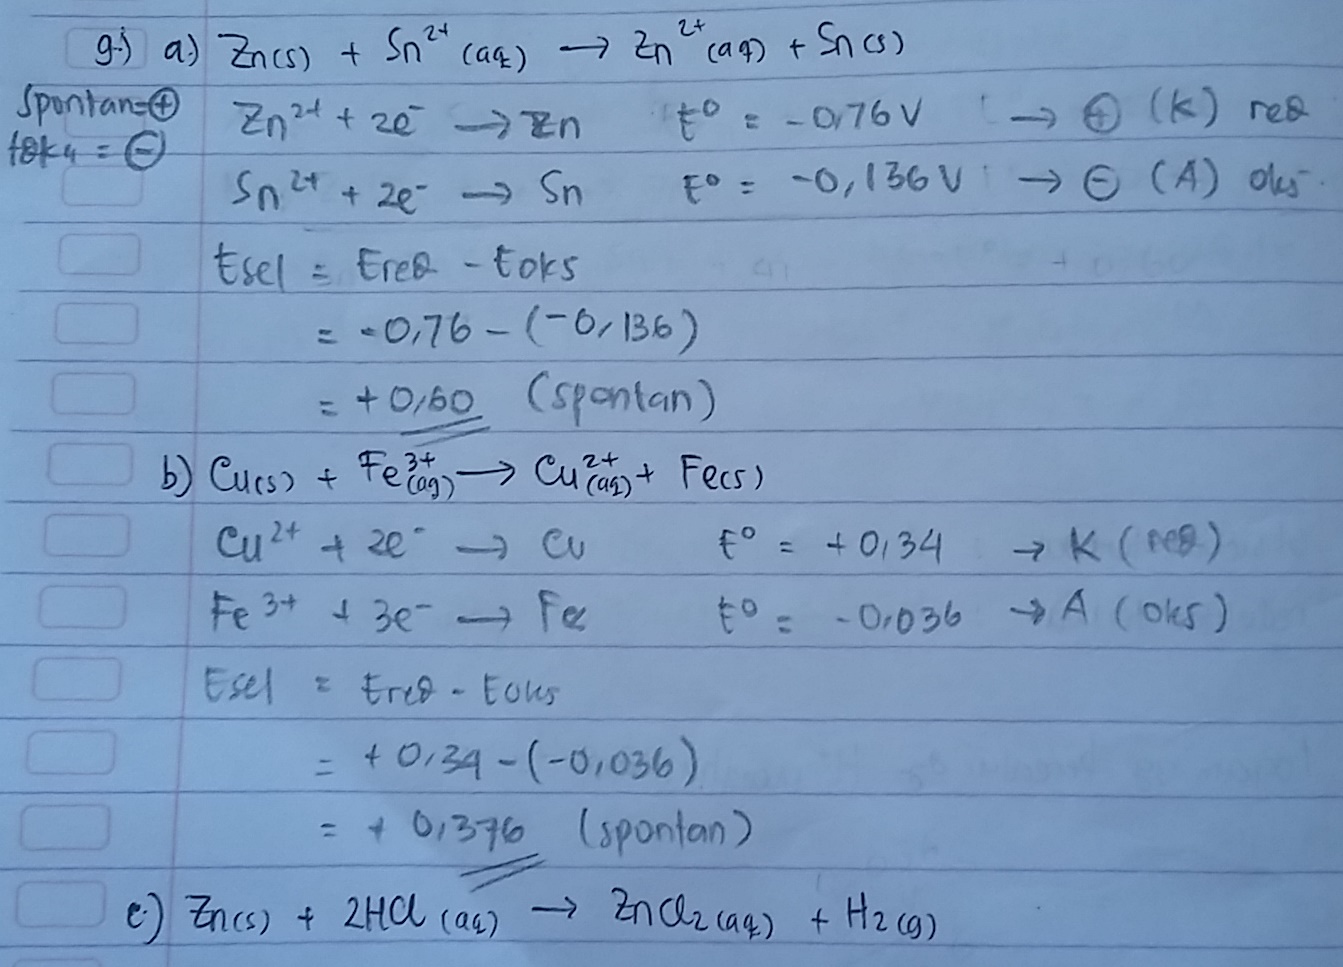 9.) a.) Zn(s) + Sn²⁺ (aq) → Zn²⁺ (aq) + Sn(s)
Spontan = ⊕
Zn²⁺ + 2e⁻ → Zn E° = -0,76 V → ⊕ (K) red
= ⊖
Sn²⁺ + 2e⁻ → Sn E° = -0,136 V → ⊖ (A) oks
Esel = Ered - Eoks
= -0,76 - (-0,136)
= +0,60 (spontan)
b) Cu(s) + Fe³⁺(aq) → Cu²⁺(aq) + Fe(s)
Cu²⁺ + 2e⁻ → Cu E° = +0,34 → K (red)
Fe³⁺ + 3e⁻ → Fe E° = -0,036 → A (oks)
Esel = Ered - Eoks
= +0,34 - (-0,036)
= + 0,376 (spontan)
c.) Zn(s) + 2HCl (aq) → ZnCl₂ (aq) + H₂ (g)